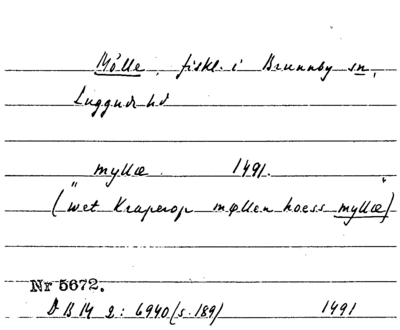 Mölle, fiskl. i Brunnby sn,
Luggude hd
myllæ 1491.
("wet Kraperop møllen hoess myllæ")
Nr 5672.
DB IV 2: 6940 (s. 189) 1491